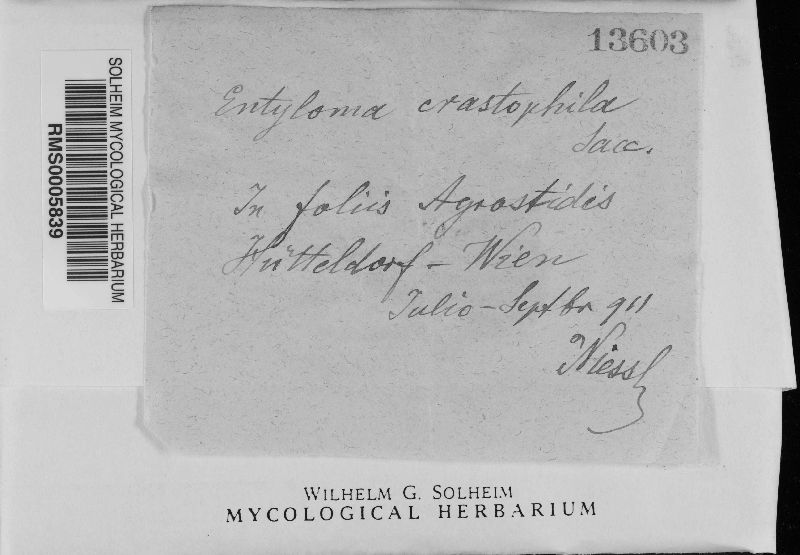 13603
Entyloma crastophila
Sacc.
In foliis Agrostidis
Hütteldorf - Wien
Julio - Septbr 911
Niessl
SOLHEIM MYCOLOGICAL HERBARIUM
RMS0005839
WILHELM G. SOLHEIM
MYCOLOGICAL HERBARIUM